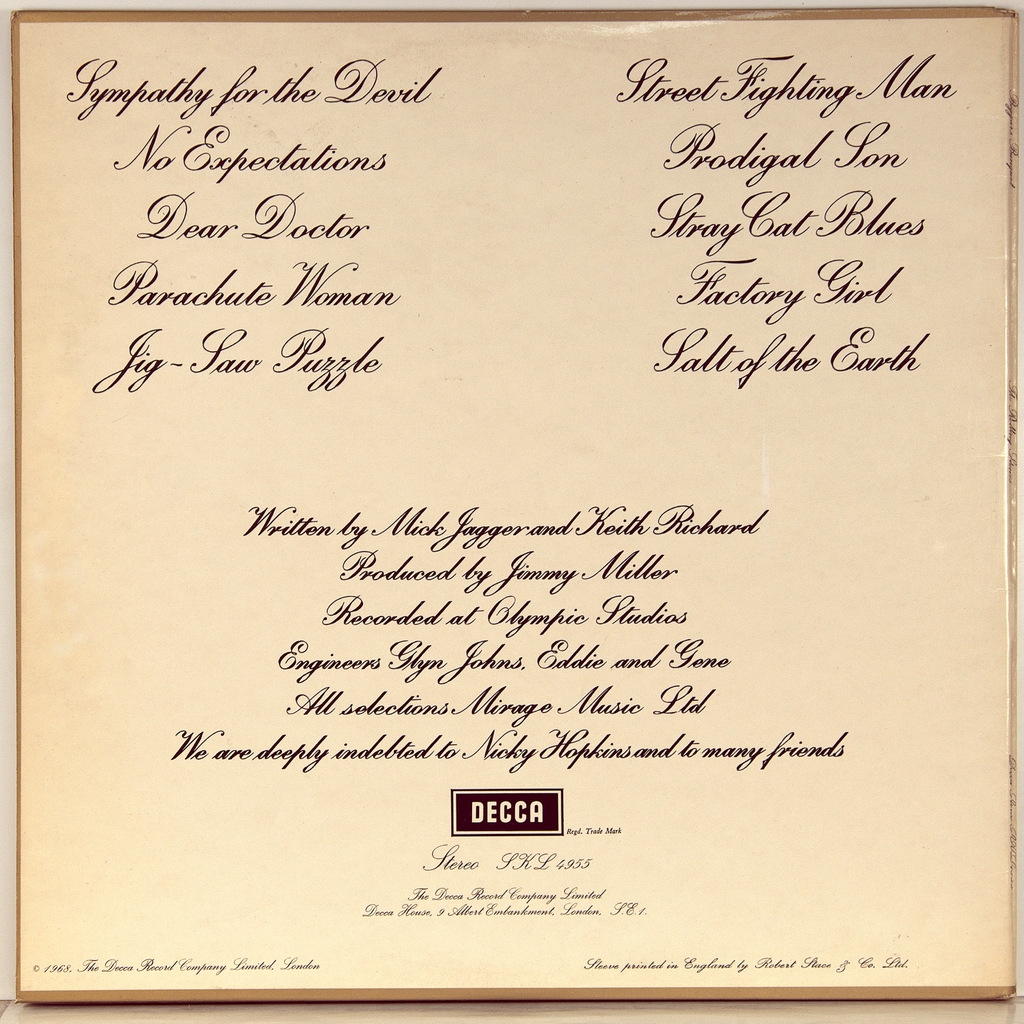 Sympathy for the Devil
No Expectations
Dear Doctor
Parachute Woman
Jig-Saw Puzzle
Street Fighting Man
Prodigal Son
Stray Cat Blues
Factory Girl
Salt of the Earth
Written by Mick Jagger and Keith Richard
Produced by Jimmy Miller
Recorded at Olympic Studios
Engineers Glyn Johns, Eddie and Gene
All selections Mirage Music Ltd
We are deeply indebted to Nicky Hopkins and to many friends
DECCA
Regd. Trade Mark
Stereo SKL 4955
The Decca Record Company Limited
Decca House, 9 Albert Embankment, London, S.E.1.
© 1968, The Decca Record Company Limited, London
Sleeve printed in England by Robert Stace & Co. Ltd.